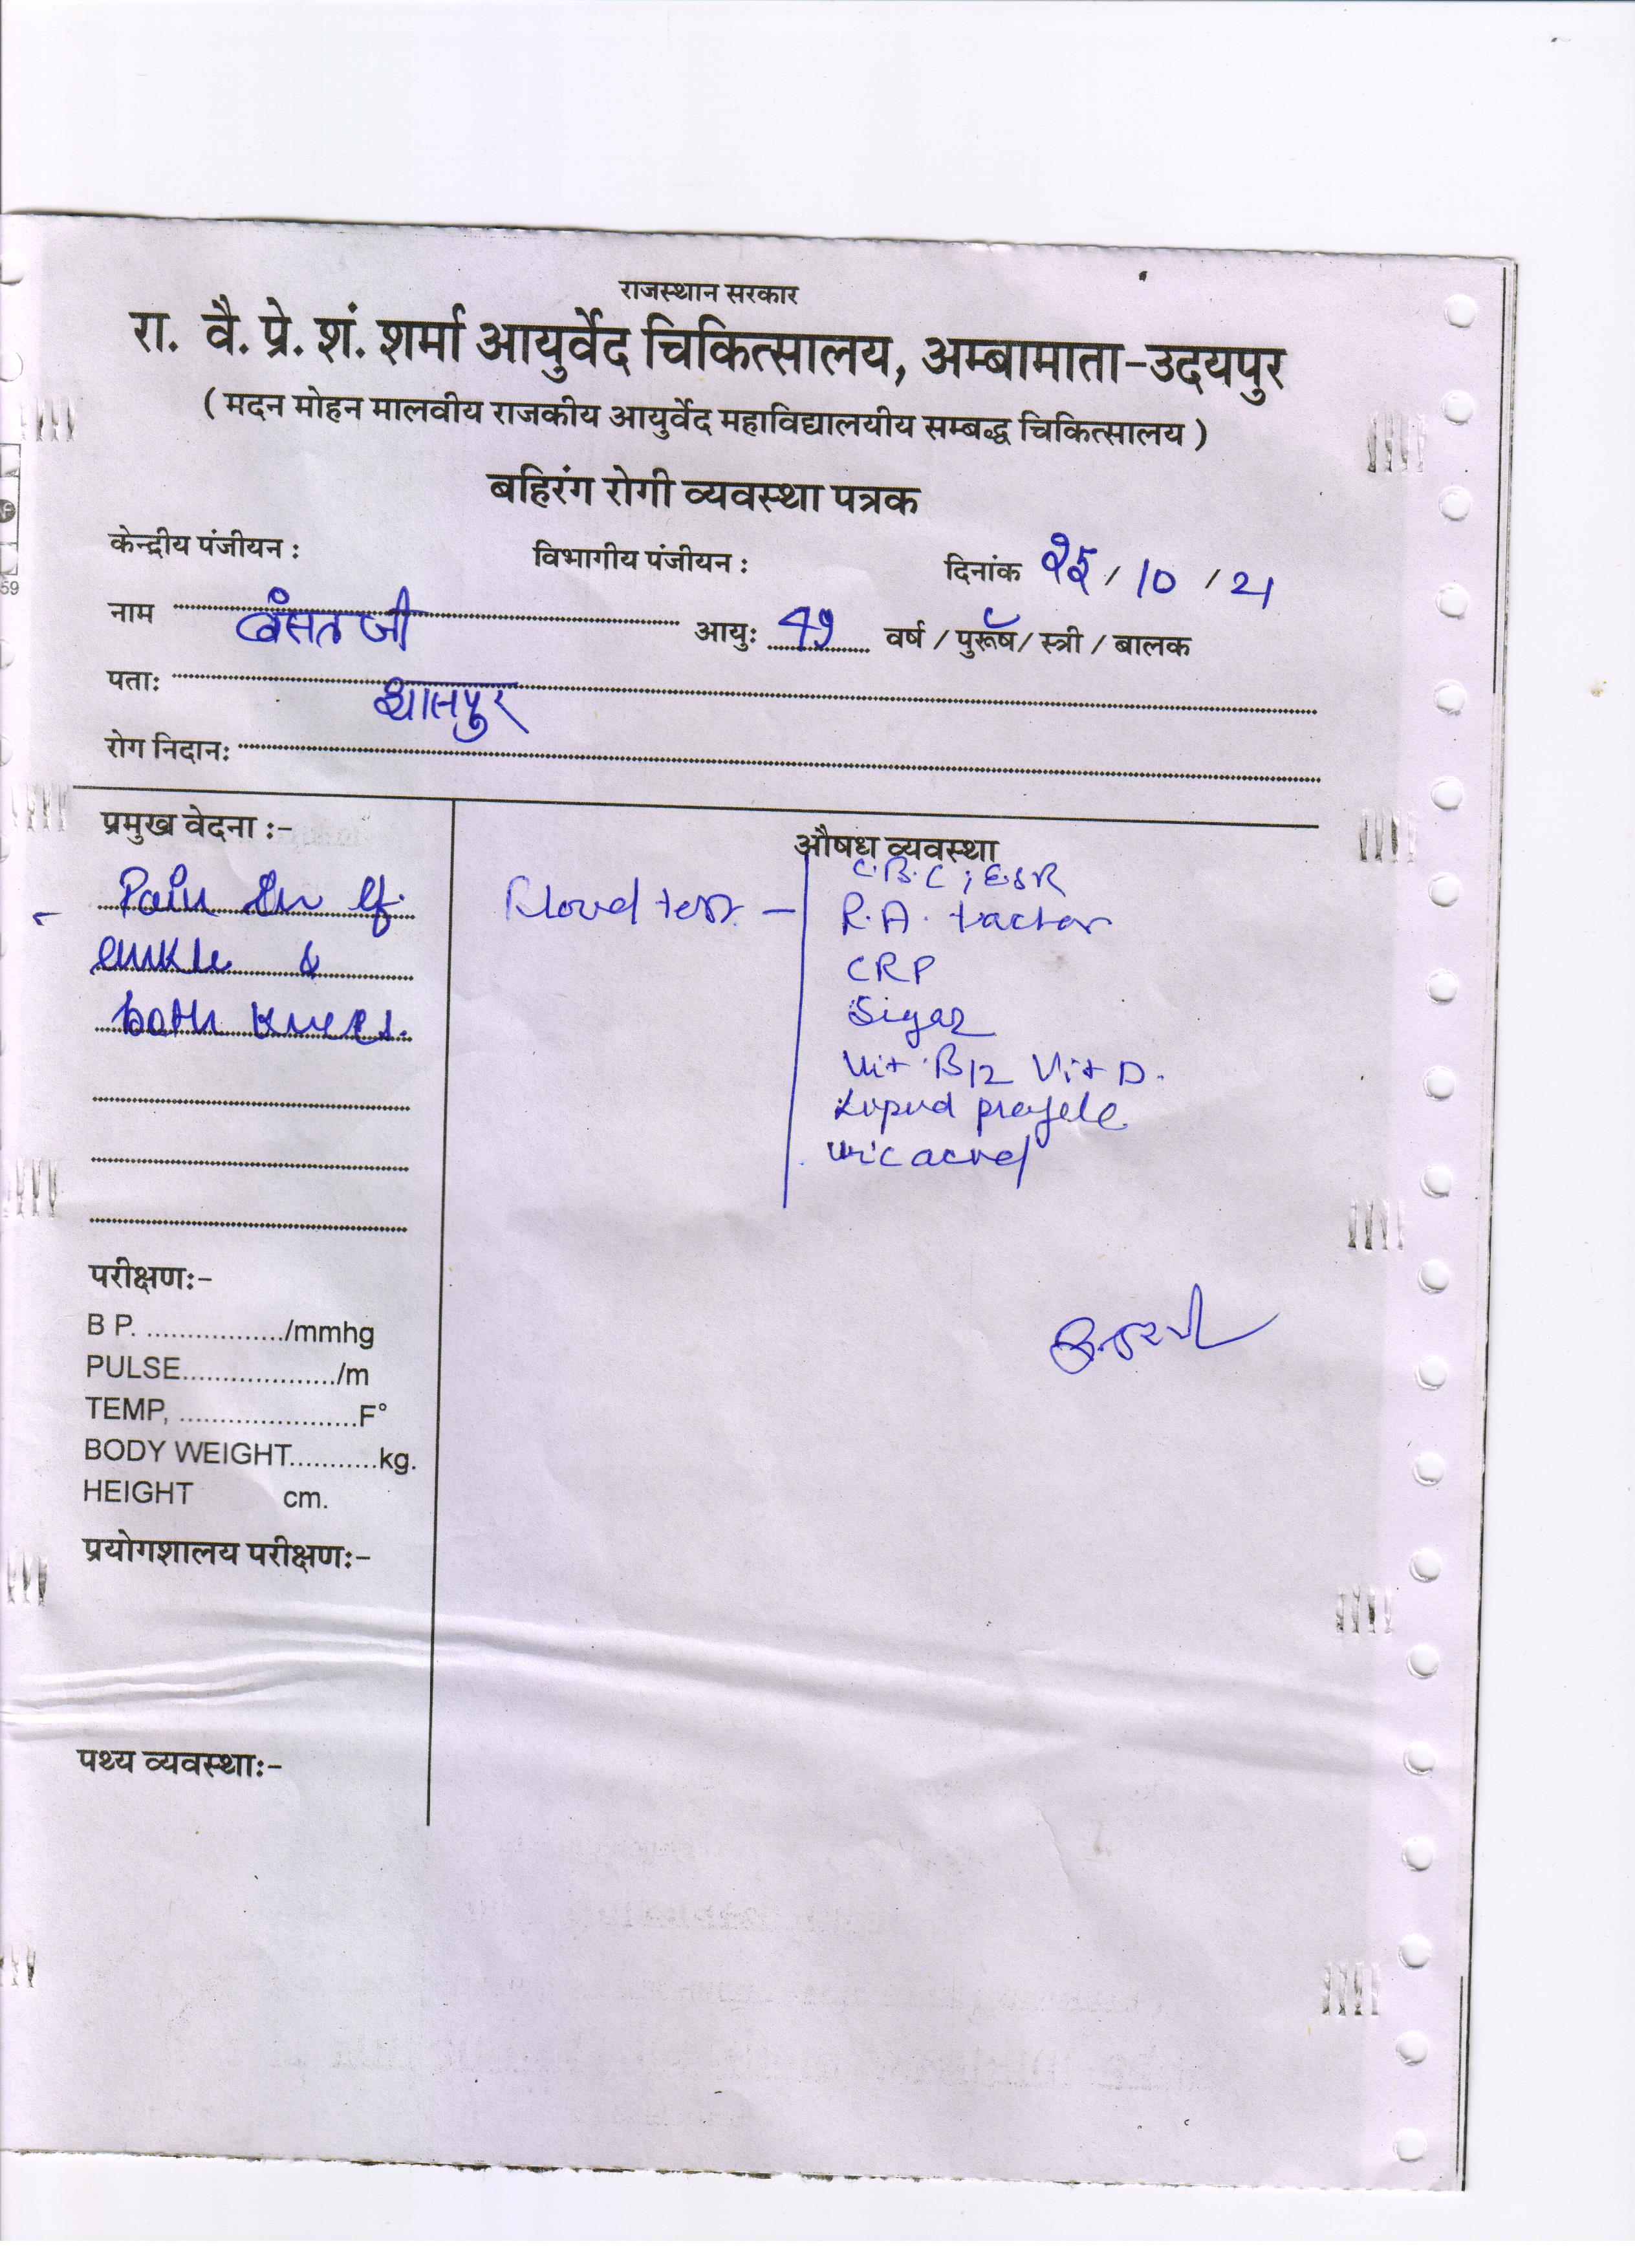 राजस्थान सरकार
रा. वै. प्रे. शं. शर्मा आयुर्वेद चिकित्सालय, अम्बामाता-उदयपुर
( मदन मोहन मालवीय राजकीय आयुर्वेद महाविद्यालयीय सम्बद्ध चिकित्सालय )
बहिरंग रोगी व्यवस्था पत्रक
केन्द्रीय पंजीयन : विभागीय पंजीयन : दिनांक / 10 / 21
नाम बंसत जी आयुः 49 वर्ष / पुरूष / स्त्री / बालक
पताः
रोग निदानः
प्रमुख वेदना :-
Pain in
ankle &
both knees.
औषध व्यवस्था
Blood test -
C.B.C ; ESR
R.A. factor
CRP
Sugar
Vit B12 Vit D.
Lipid profile
uric acid
परीक्षणः-
B P. ................./mmhg
PULSE.................../m
TEMP, ......................F°
BODY WEIGHT...........kg.
HEIGHT cm.
प्रयोगशालय परीक्षणः-
पथ्य व्यवस्थाः-